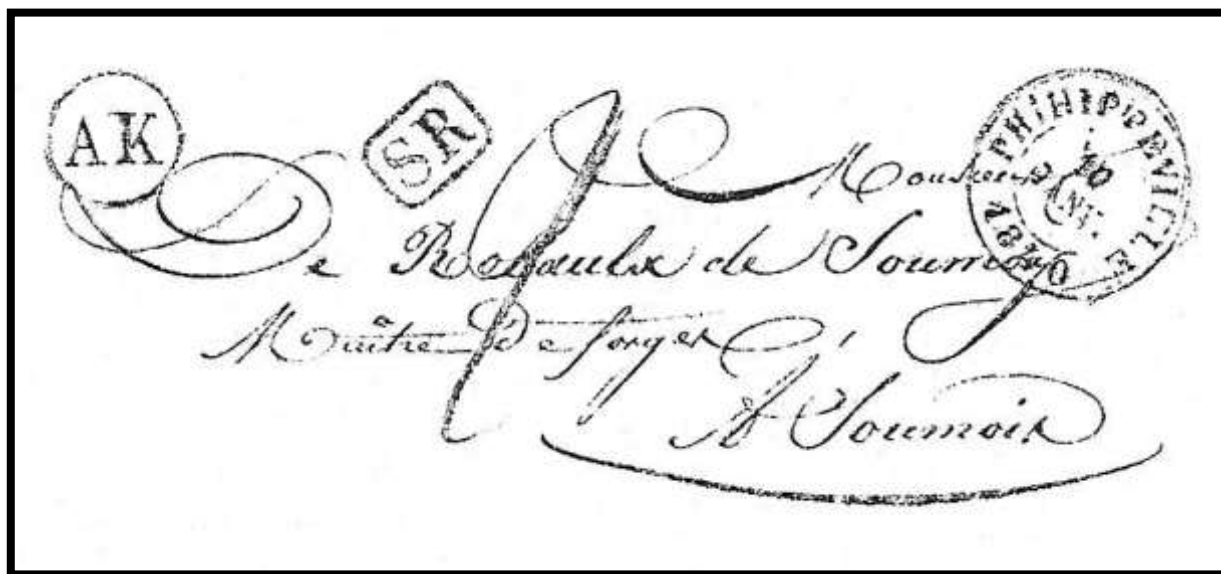 AK
SR
PHIHIPPEVILLE
10
Monsieur
De Robaulx de Soumoy
Maître De forges
A Soumois